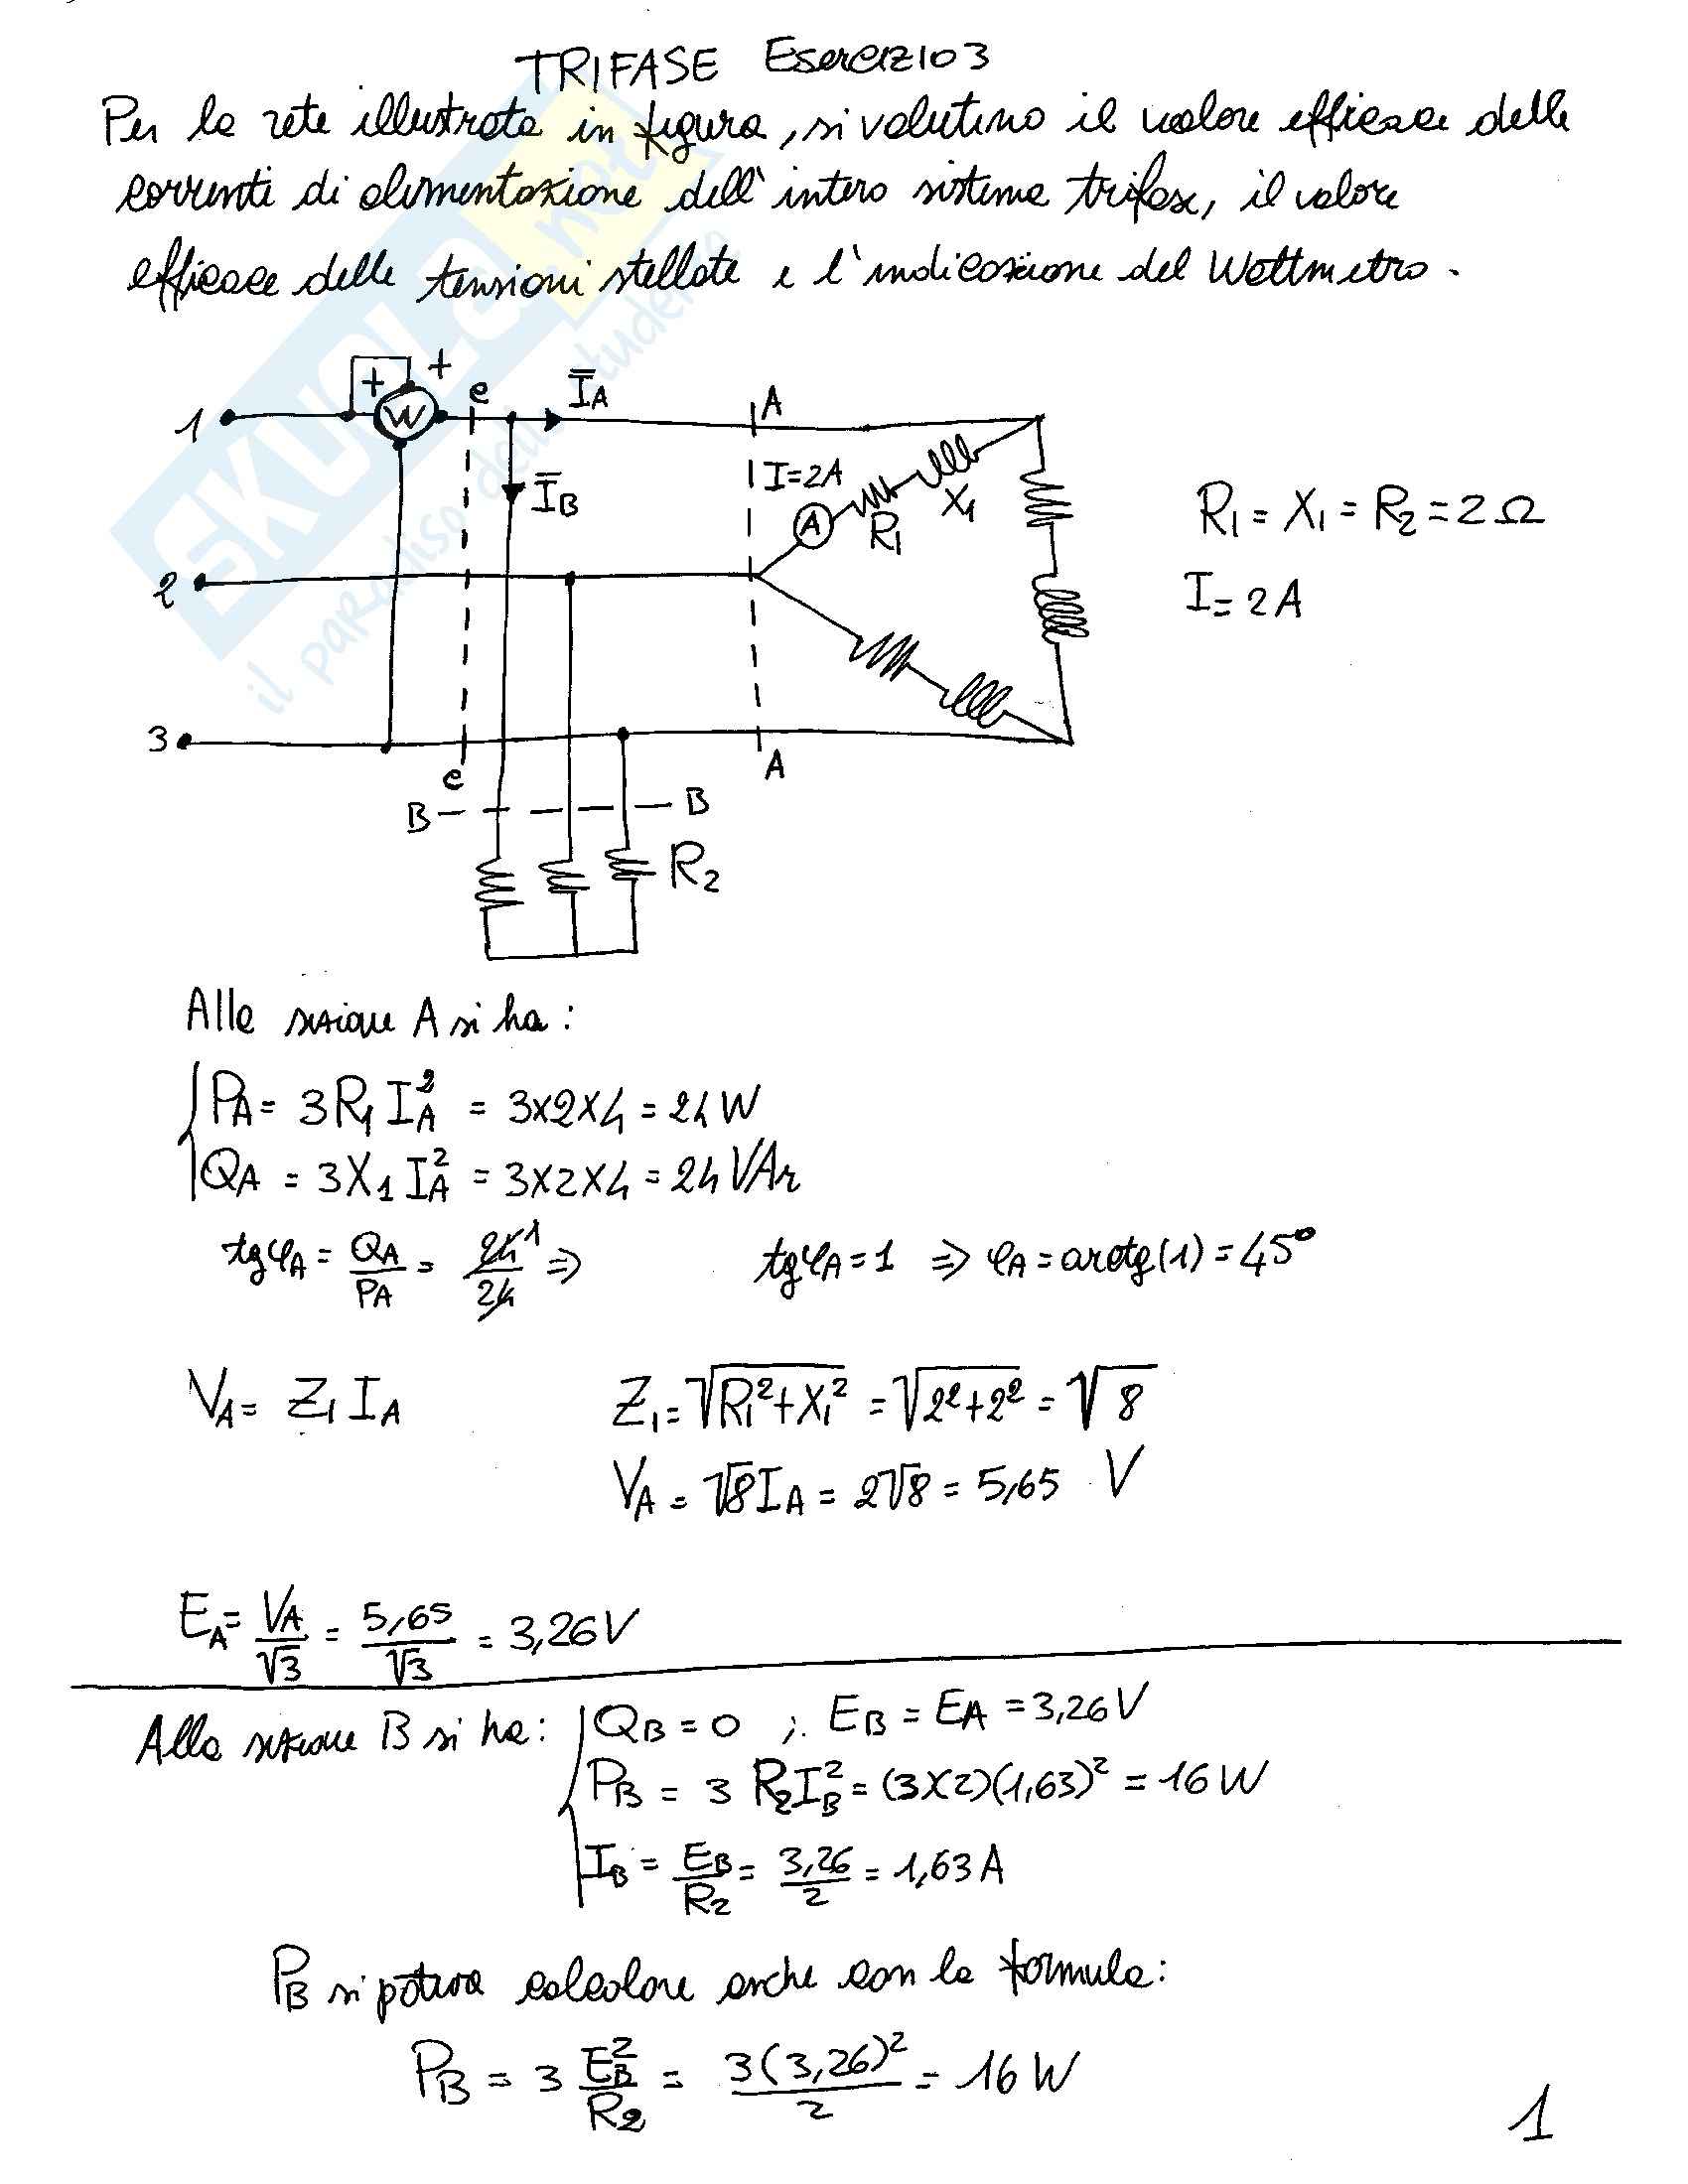 TRIFASE Esercizio 3
Per la rete illustrata in figura, si valutino il valore efficace delle
correnti di alimentazione dell'intero sistema trifase, il valore
efficace delle tensioni stellate e l'indicazione del Wattmetro.
+ +
1 W e I̅A A
I=2A
I̅B A R1 X1
R1 = X1 = R2 = 2 Ω
2
I = 2A
3
e A
B B
R2
Alla sezione A si ha:
PA = 3R1 IA² = 3x2x4 = 24 W
QA = 3X1 IA² = 3x2x4 = 24 VAr
tgφA = QA/PA = 24/24 1 ⇒ tgφA = 1 ⇒ φA = arctg(1) = 45°
VA = Z1 IA Z1 = √R1²+X1² = √2²+2² = √8
VA = √8 IA = 2√8 = 5,65 V
EA = VA/√3 = 5,65/√3 = 3,26 V
Alla sezione B si ha: QB = 0 ; EB = EA = 3,26 V
PB = 3 R2 IB² = (3x2)(1,63)² = 16 W
IB = EB/R2 = 3,26/2 = 1,63 A
PB si poteva calcolare anche con la formula:
PB = 3 EB²/R2 = 3(3,26)²/2 = 16 W
1
SKUOLA.net
il paradiso dello studente